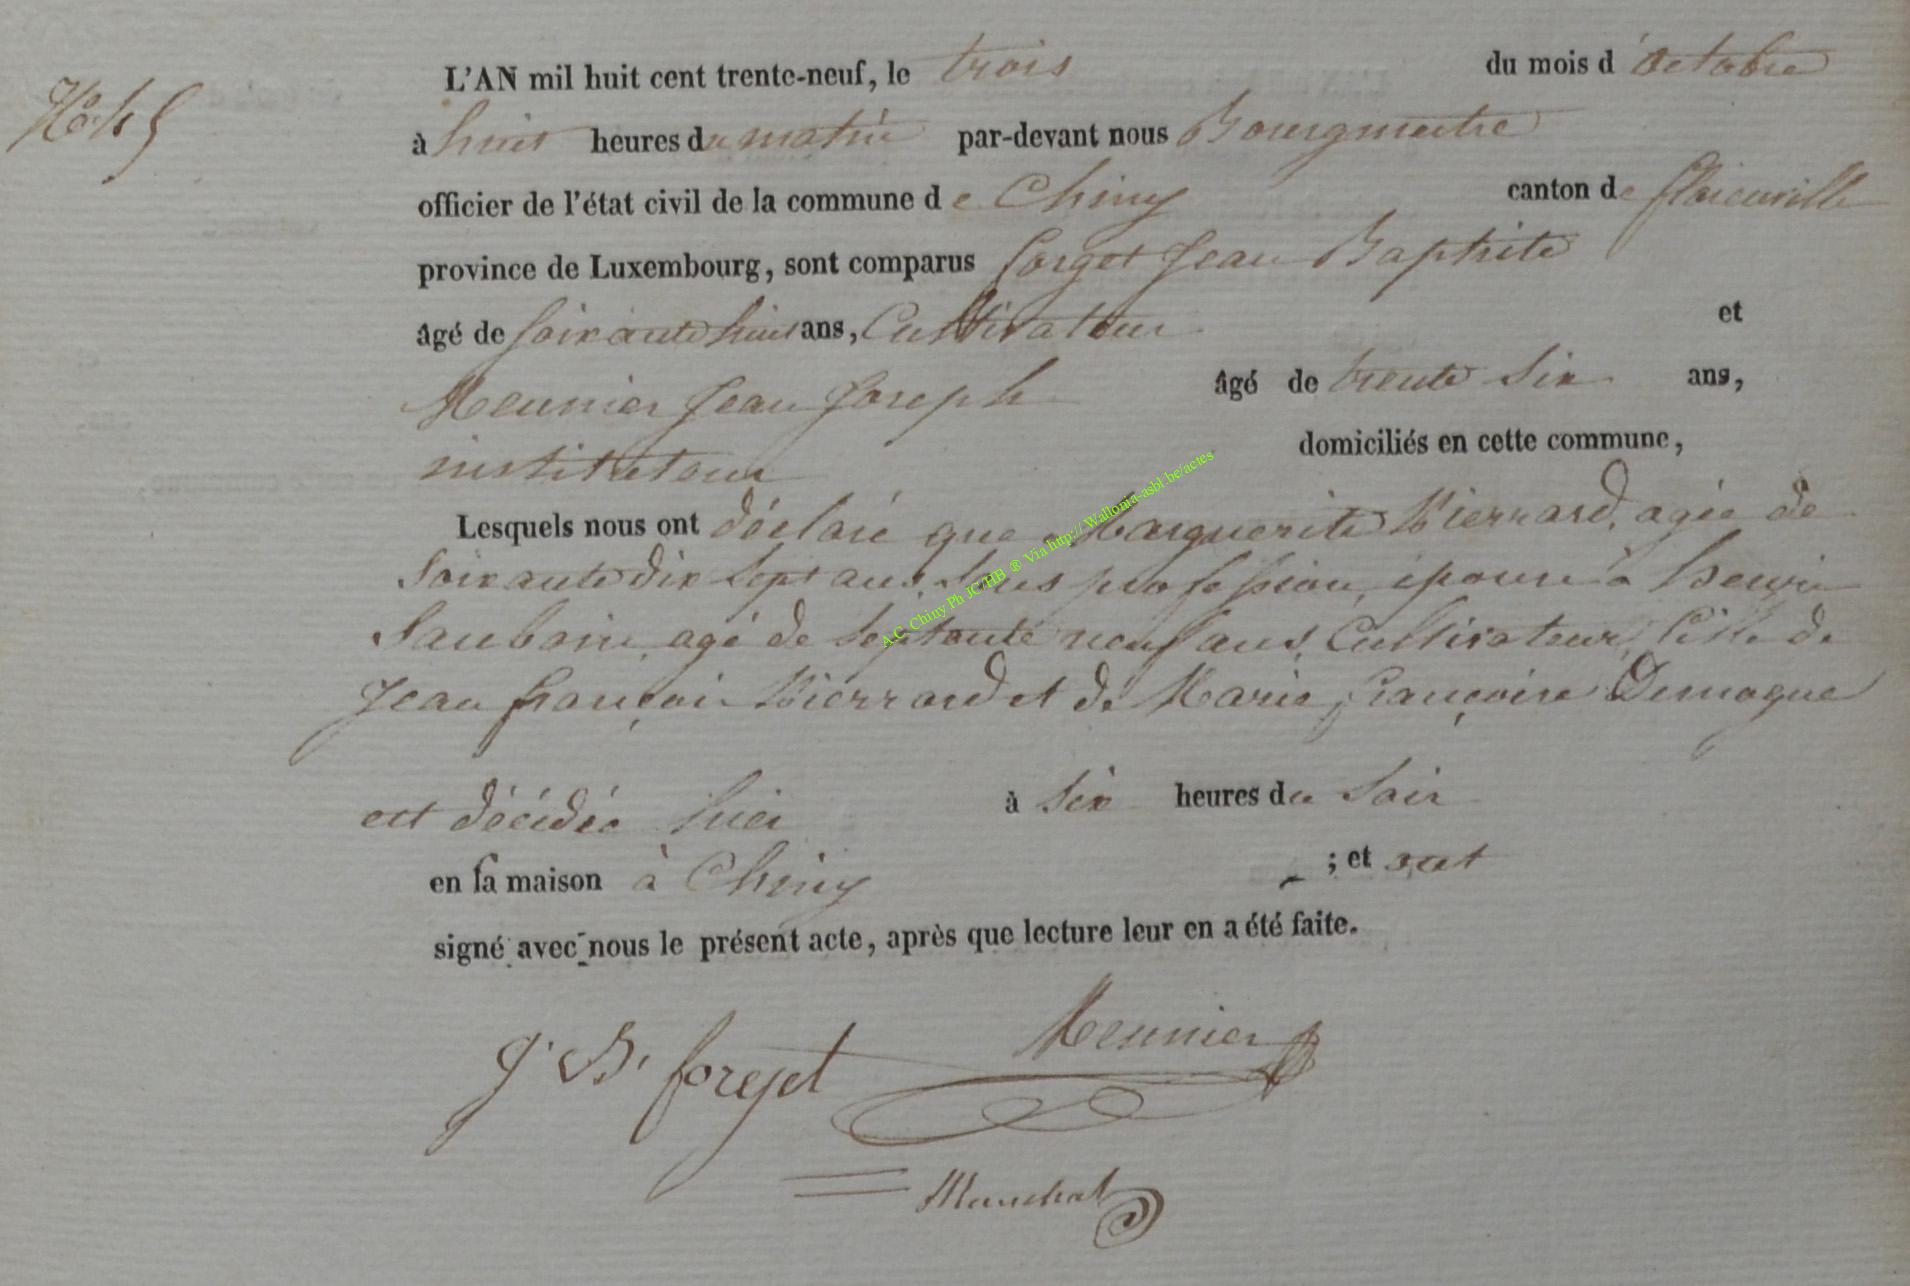 L'AN mil huit cent trente-neuf, le trois du mois d'octobre
à huit heures du matin par-devant nous Bourgmestre
officier de l'état civil de la commune de Chiny canton de florenville
province de Luxembourg, sont comparus forget Jean Baptiste
âgé de soixante huit ans, Cultivateur et
Meunier Jean Joseph âgé de trente six ans,
instituteur domiciliés en cette commune,
Lesquels nous ont déclaré que Marguerite Pierrard, agée de
soixante dix sept ans, sans profession, épouse à henri
agé de septante neuf ans, Cultivateur, fille de
Jean françois Pierrard et de Marie françoise Demogue
est décédée hier à six heures du soir
en sa maison à Chiny ; et ont
signé avec nous le présent acte, après que lecture leur en a été faite.
J. B. forget Meunier
Manchat
A.C. Chiny Ph JC/HB ® Via http:// Wallonia-asbl.be/actes